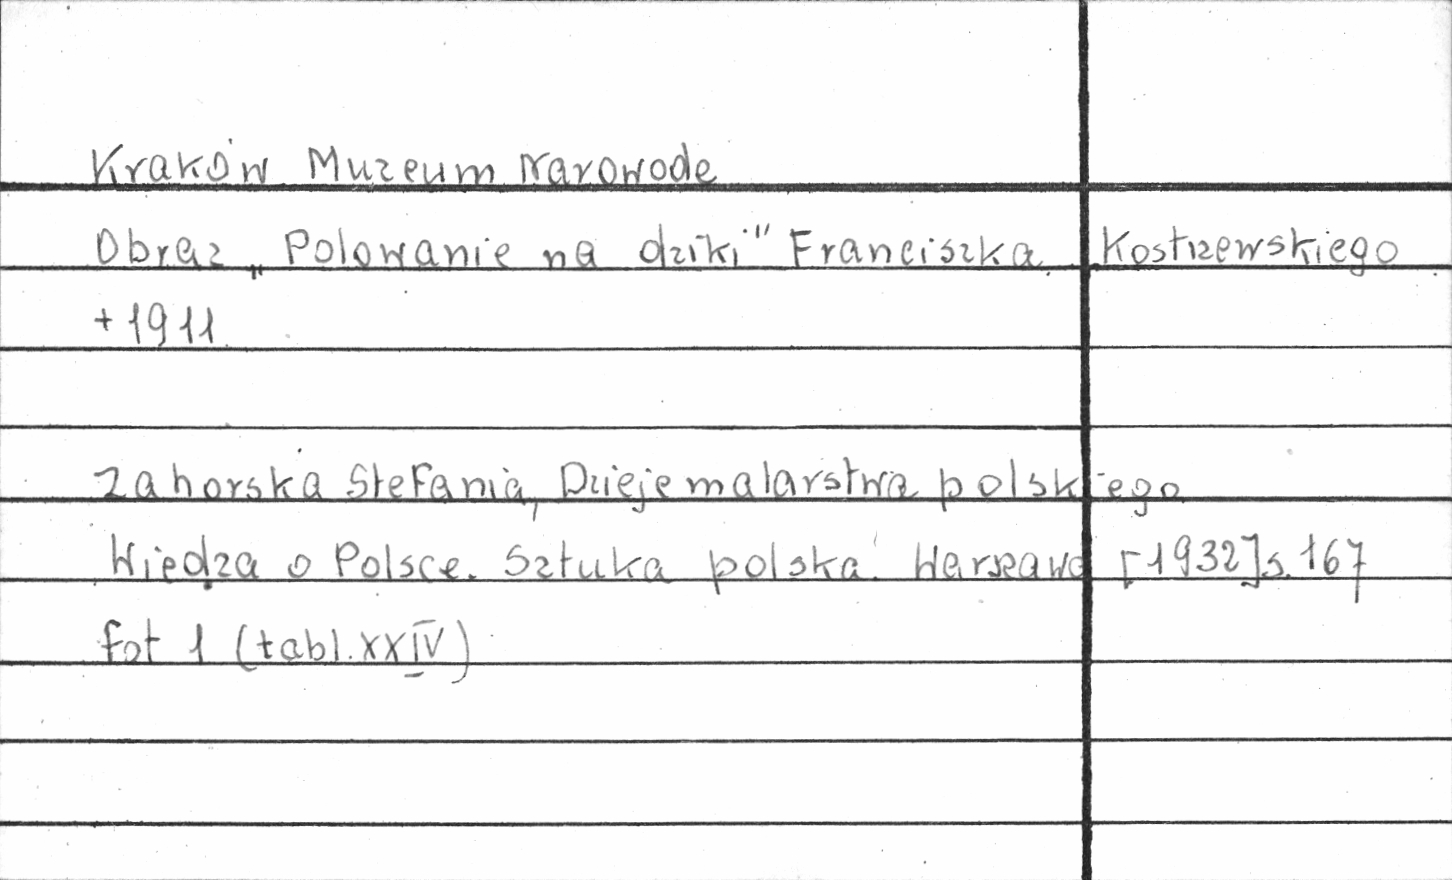 Kraków Muzeum Narowode
Obraz „Polowanie na dziki" Franciszka Kostrzewskiego
+ 1911
Zahorska Stefania, Dzieje malarstwa polskiego
Wiedza o Polsce. Sztuka polska. Warszawa [1932] s. 167
fot 1 (tabl. XXIV)